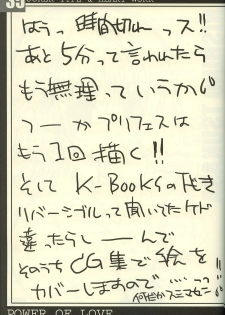 はうっ 時間切れっス!!
あと5分って言われたら
もう無理っていうか
つーかプリフェスは
もう1回描く!!
そして K-BOOKSの下敷き
リバーシブルって聞いてたケド
違ったらしーんで
そのうちCG集で絵を
カバーしますので‥‥っっ
何だかスミマセン
POWER OF LOVE